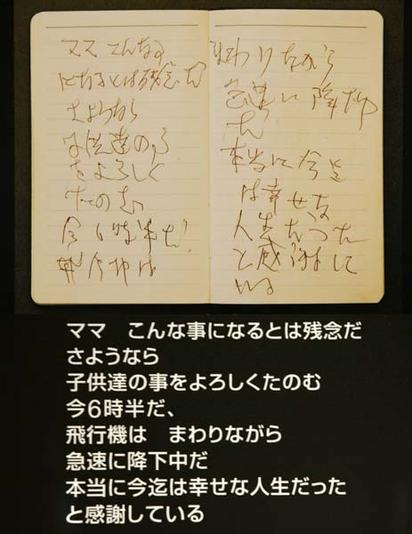 ママ こんな事
になるとは残念だ
さようなら
子供達の事
をよろしく
たのむ
今6時半だ
飛行機は
まわりながら
急速に降下中
だ
本当に今迄
は幸せな
人生だった
と感謝して
いる
ママ　こんな事になるとは残念だ
さようなら
子供達の事をよろしくたのむ
今6時半だ、
飛行機は　まわりながら
急速に降下中だ
本当に今迄は幸せな人生だった
と感謝している